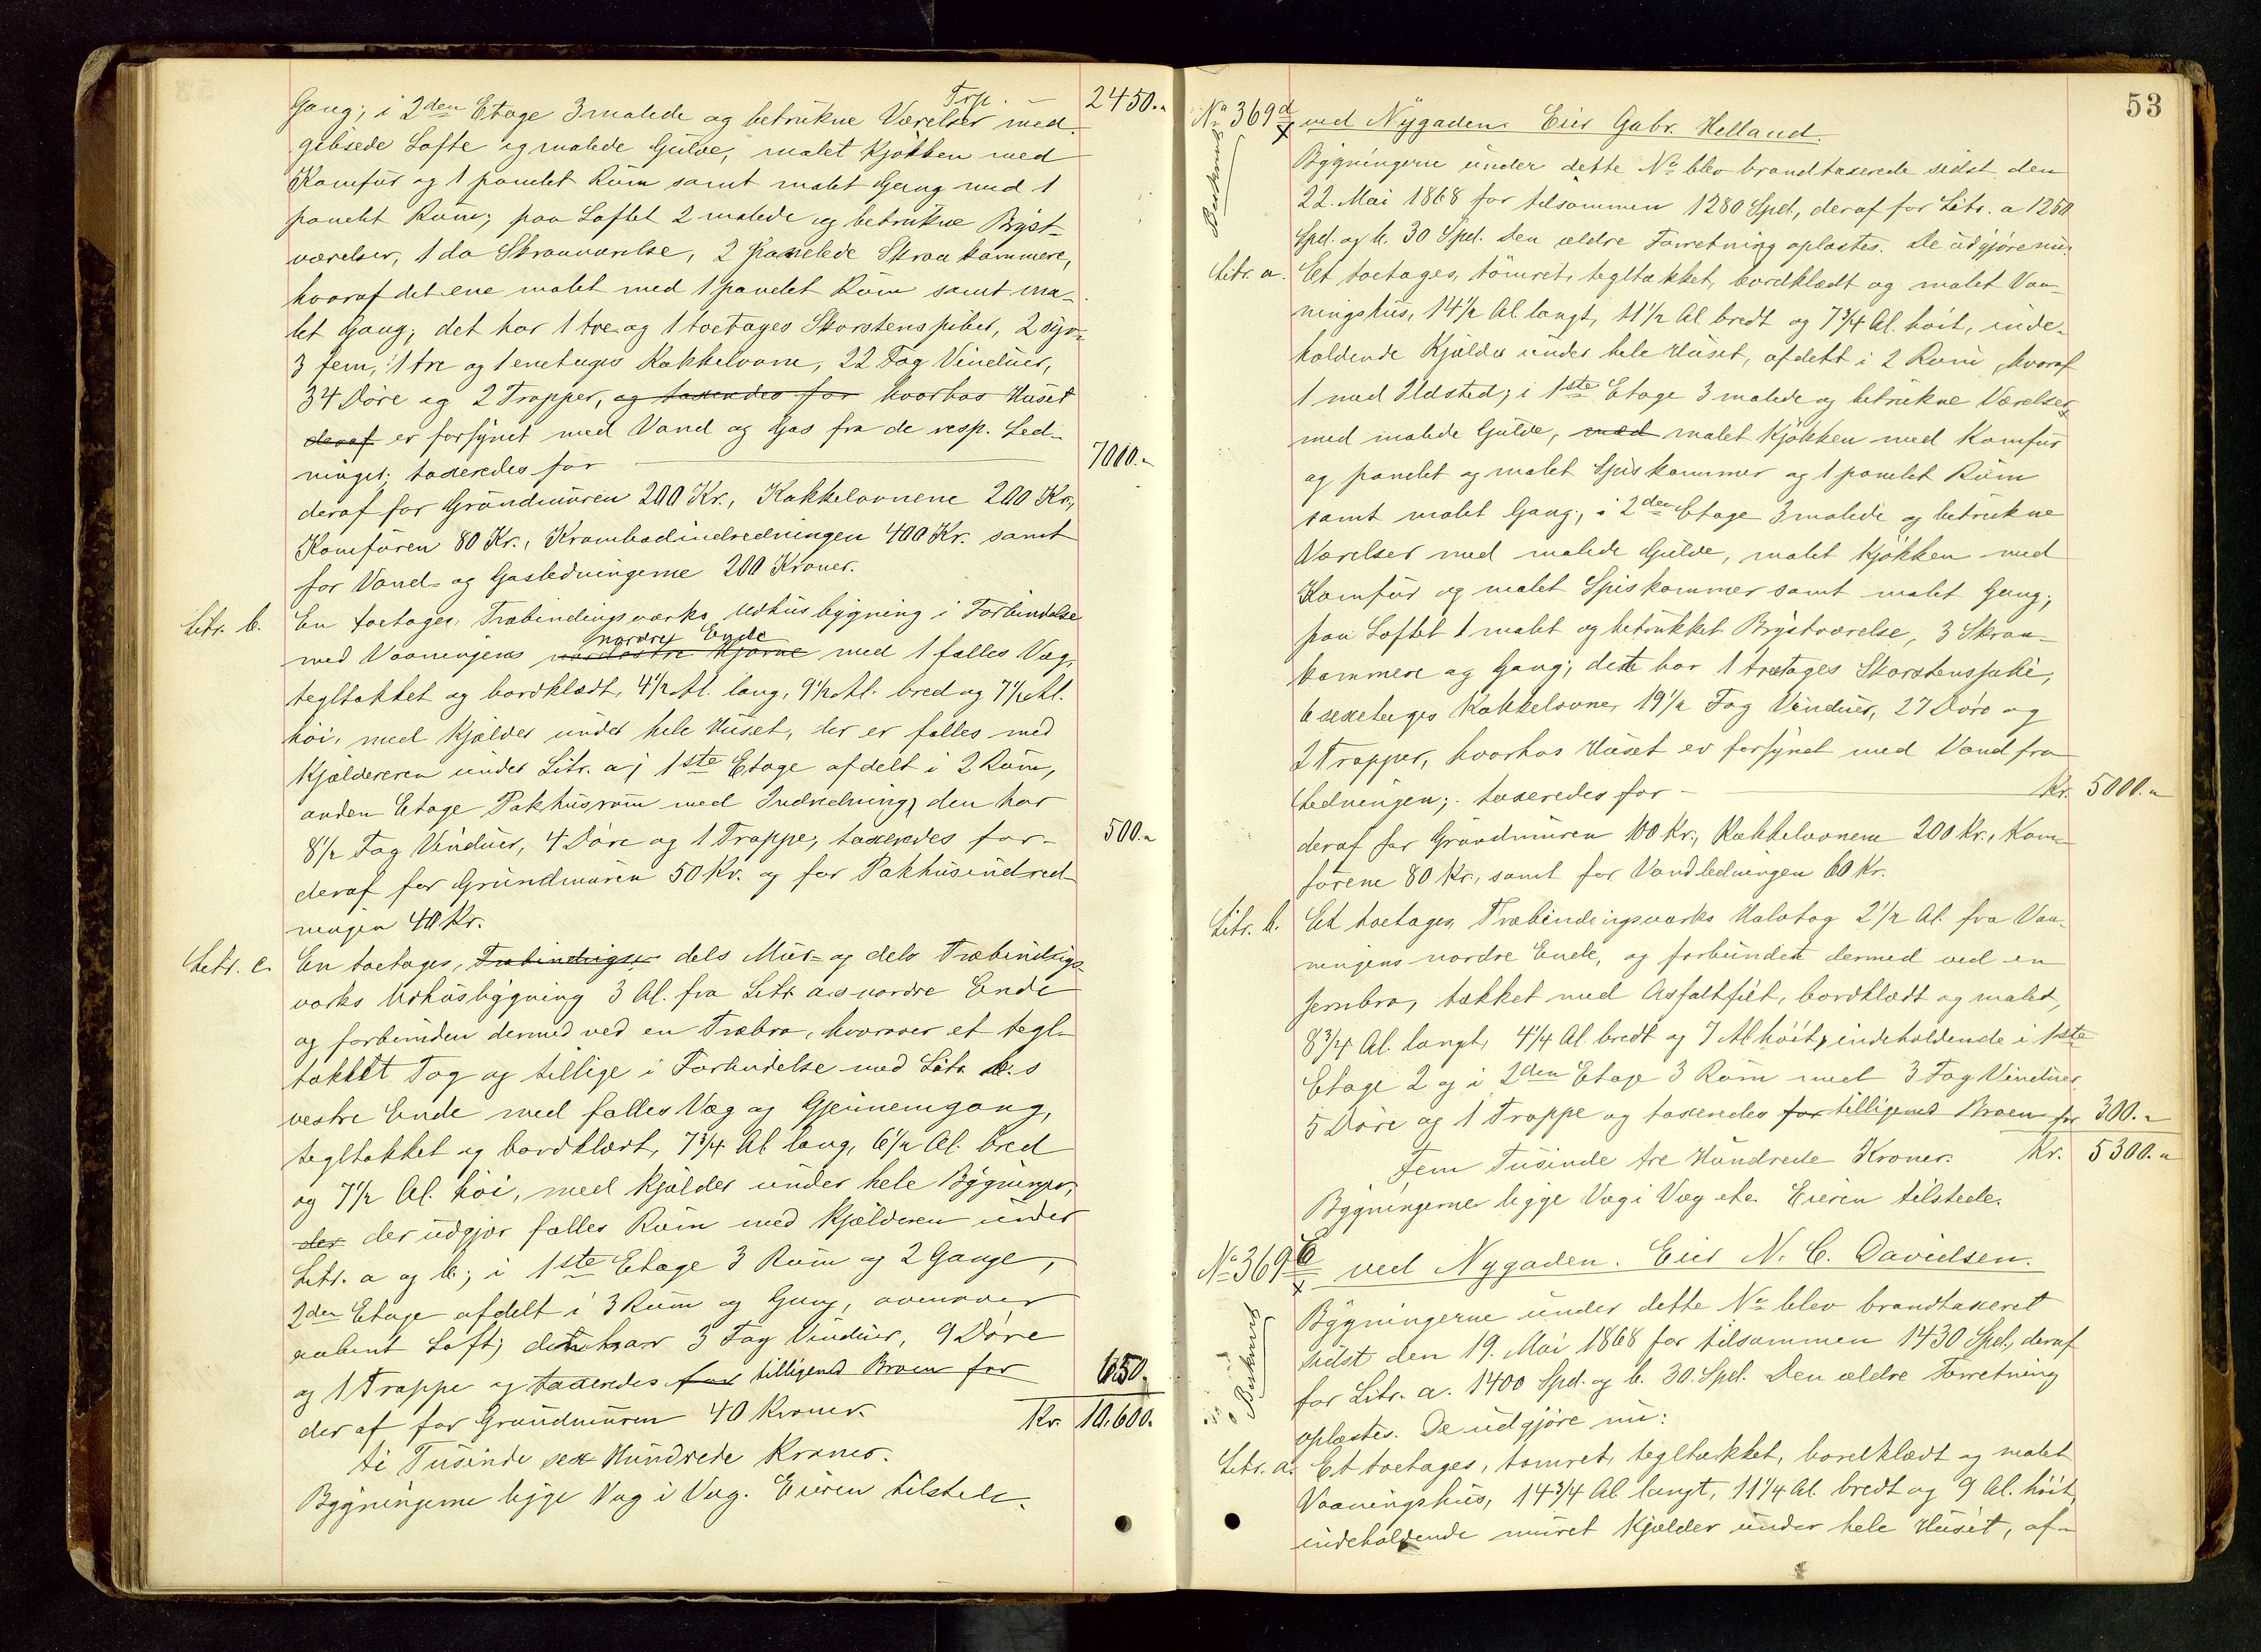 Trp. — 2450."
Gang; i 2den Etage 3 malede og betrukne Værelser med
gibsede Lofte og malede Gulve, malet Kjøkken med
Komfur og 1 panelet Rum samt malet Gang med 1
panelet Rum; paa Loftet 2 malede og betrukne Bryst-
værelser, 1 do Skraaværelse, 2 panelede Skraakammere,
hvoraf det ene malet med 1 panelet Rum samt ma-
let Gang; det har 1 tre og 1 toetages Skorstenspiber, 2 syv-
3 fem, 1 tre og 1 enetages Kakkelovne, 22 Fag Vinduer,
34 Døre og 2 Trapper, og taxeredes for hvorhos Huset
deraf er forsynet med Vand og Gas fra de resp. Led-
ninger; taxeredes for 7000."
deraf for Grundmuren 200 Kr., Kakkelovnene 200 Kr.,
Komfuren 80 Kr., Krambodindredningen 400 Kr. samt
for Vand- og Gasledningerne 200 Kroner.
Litr. b. En toetages, Træbindingsværks Udhusbygning i Forbindelse
nordre Ende
med Vaaningens nordøstre Hjørne med 1 fælles Væg,
tegltækket og bordklædt, 4 1/2 Al. lang, 9 1/2 Al. bred og 7 1/2 Al.
høi, med Kjælder under hele Huset, der er fælles med
Kjælderen under Litr. a; 1ste Etage afdelt i 2 Rum,
anden Etage Pakhusrum med Indredning; den har
8 1/2 Fag Vinduer, 4 Døre og 1 Trappe; taxeredes for- 500."
deraf for Grundmuren 50 Kr. og for Pakhusindred-
ningen 40 Kr.
Litr. c. En toetages, Træbindings- dels Mur- og dels Træbindings-
værks Udhusbygning 3 Al. fra Litr a.s nordre Ende
og forbunden dermed ved en Træbro, hvorover et tegl-
tækket Tag og tillige i Forbindelse med Litr. b.s
vestre Ende med fælles Væg og Gjennemgang,
tegltækket og bordklædt, 7 3/4 Al lang, 6 1/2 Al. bred
og 7 1/2 Al. høi, med Kjælder under hele Bygningen,
der der udgjør fælles Rum med Kjælderen under
Litr. a og b; i 1ste Etage 3 Rum og 2 Gange,
2den Etage afdelt i 3 Rum og Gang, ovenover
aabent Loft; den har 3 Fag Vinduer, 9 Døre
og 1 Trappe og taxeredes for tilligemed Broen for 650.
deraf for Grundmuren 40 Kroner. Kr. 10,600.
ti Tusinde sex Hundrede Kroner.
Bygningerne ligge Væg i Væg. Eieren tilstede.
53
No 369d ved Nygaden. Eier Gabr. Helland.
Bygningerne under dette No blev brandtaxerede sidst den
22. Mai 1868 for tilsammen 1280 Spd., deraf for Litr. a 1250
Spd. og b. 30 Spd. Den ældre Forretning oplæstes. De udgjøre nu:
Litr. a. Et toetages, tømret, tegltækket, bordklædt og malet Vaa-
ningshus, 14 1/2 Al. langt, 11 1/2 Al. bredt og 7 3/4 Al. høit, inde-
holdende Kjælder under hele Huset, afdelt i 2 Rum, hvoraf
1 med Ildsted; i 1ste Etage 3 malede og betrukne Værelser
med malede Gulve, med malet Kjøkken med Komfur
og panelet og malet Spiskammer og 1 panelet Rum
samt malet Gang; i 2den Etage 3 malede og betrukne
Værelser med malede Gulve, malet Kjøkken med
Komfur og malet Spiskammer samt malet Gang;
paa Loftet 1 malet og betrukket Brystværelse, 3 Skraa-
kammere og Gang; dette har 1 treetages Skorstenspibe,
6 sexetages Kakkelovne, 19 1/2 Fag Vinduer, 27 Døre og
2 Trapper, hvorhos Huset er forsynet med Vand fra
Ledningen; taxeredes for - Kr. 5000."
deraf for Grundmuren 100 Kr., Kakkelovnene 200 Kr., Kom-
furene 80 Kr., samt for Vandledningen 60 Kr.
Litr. b. Et toetages, Træbindingsværks Halvtag 2 1/2 Al. fra Vaa-
ningens nordre Ende, og forbundet dermed ved en
Jernbro, tækket med Asfaltfilt, bordklædt og malet,
8 3/4 Al. langt, 4 1/4 Al. bredt og 7 Al. høit, indeholdende i 1ste
Etage 2 og i 2den Etage 3 Rum med 3 Fag Vinduer
5 Døre og 1 Trappe og taxeredes for tilligemed Broen for 300."
Fem Tusinde tre Hundrede Kroner. Kr. 5300."
Bygningerne ligge Væg i Væg etc. Eieren tilstede.
No 369e ved Nygaden. Eier N. C. Davidsen.
Bygningerne under dette No blev brandtaxeret
sidst den 19. Mai 1868 for tilsammen 1430 Spd., deraf
for Litr. a. 1400 Spd. og b. 30. Spd. Den ældre Forretning
oplæstes. De udgjøre nu:
Litr. a. Et toetages, tømret, tegltækket, bordklædt og malet
Vaaningshus, 14 3/4 Al. langt, 11 1/4 Al. bredt og 9 Al. høit,
indeholdende muret Kjælder under hele Huset, af-